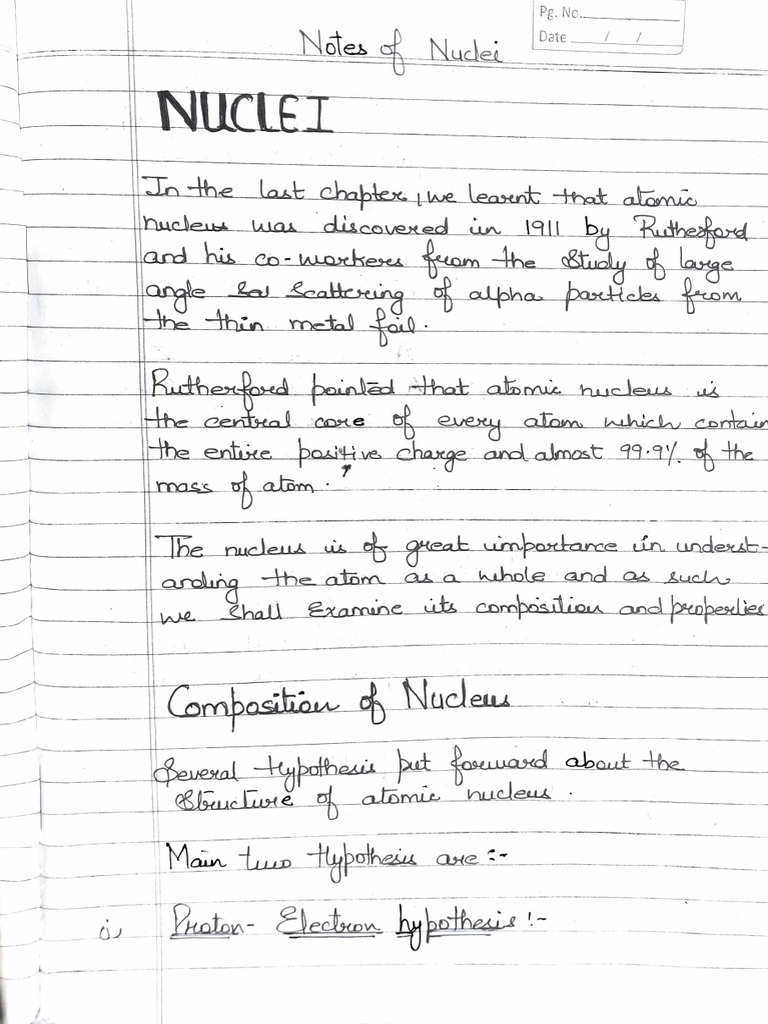 Pg. No.
Date / /
Notes of Nuclei
NUCLEI
In the last chapter, we learnt that atomic
nucleus was discovered in 1911 by Rutherford
and his co-workers from the study of large
angle scattering of alpha particles from
the thin metal foil.
Rutherford pointed that atomic nucleus is
the central core of every atom which contain
the entire positive charge and almost 99.9% of the
mass of atom.
The nucleus is of great importance in underst-
anding the atom as a whole and as such
we shall Examine its composition and properties
Composition of Nucleus
Several Hypothesis put forward about the
Structure of atomic nucleus.
Main two Hypothesis are :-
i) Proton- Electron hypothesis :-